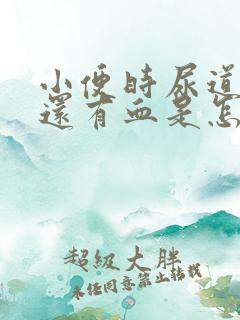 小便時尿道
還有血是怎
超級大胖
未任同意禁止轉載